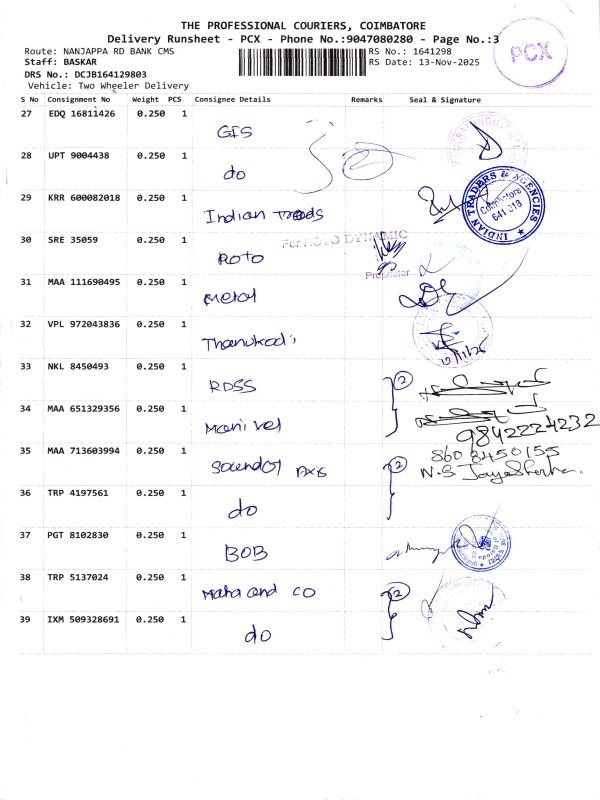 THE PROFESSIONAL COURIERS, COIMBATORE
Delivery Runsheet - PCX - Phone No.:9047080280 - Page No.:3
PCX
Route: NANJAPPA RD BANK CMS
RS No.: 1641298
Staff: BASKAR
RS Date: 13-Nov-2025
DRS No.: DCJB164129803
Vehicle: Two Wheeler Delivery
S No Consignment No Weight PCS Consignee Details Remarks Seal & Signature
27 EDQ 16811426 0.250 1 GIS
28 UPT 9004438 0.250 1 do
29 KRR 600082018 0.250 1 Indian Treads
INDIAN TRADERS & AGENCIES
Coimbatore
641 018
30 SRE 35059 0.250 1 ROTO
For ROTO DYNAMIC
Proprietor
31 MAA 111690495 0.250 1 Metal
32 VPL 972043836 0.250 1
33 NKL 8450493 0.250 1 RDSS 2
34 MAA 651329356 0.250 1 Manivel
9842224232
35 MAA 713603994 0.250 1 2
8608450155
36 TRP 4197561 0.250 1 do
37 PGT 8102830 0.250 1 BOB
38 TRP 5137024 0.250 1 Maha and co 2
39 IXM 509328691 0.250 1 do